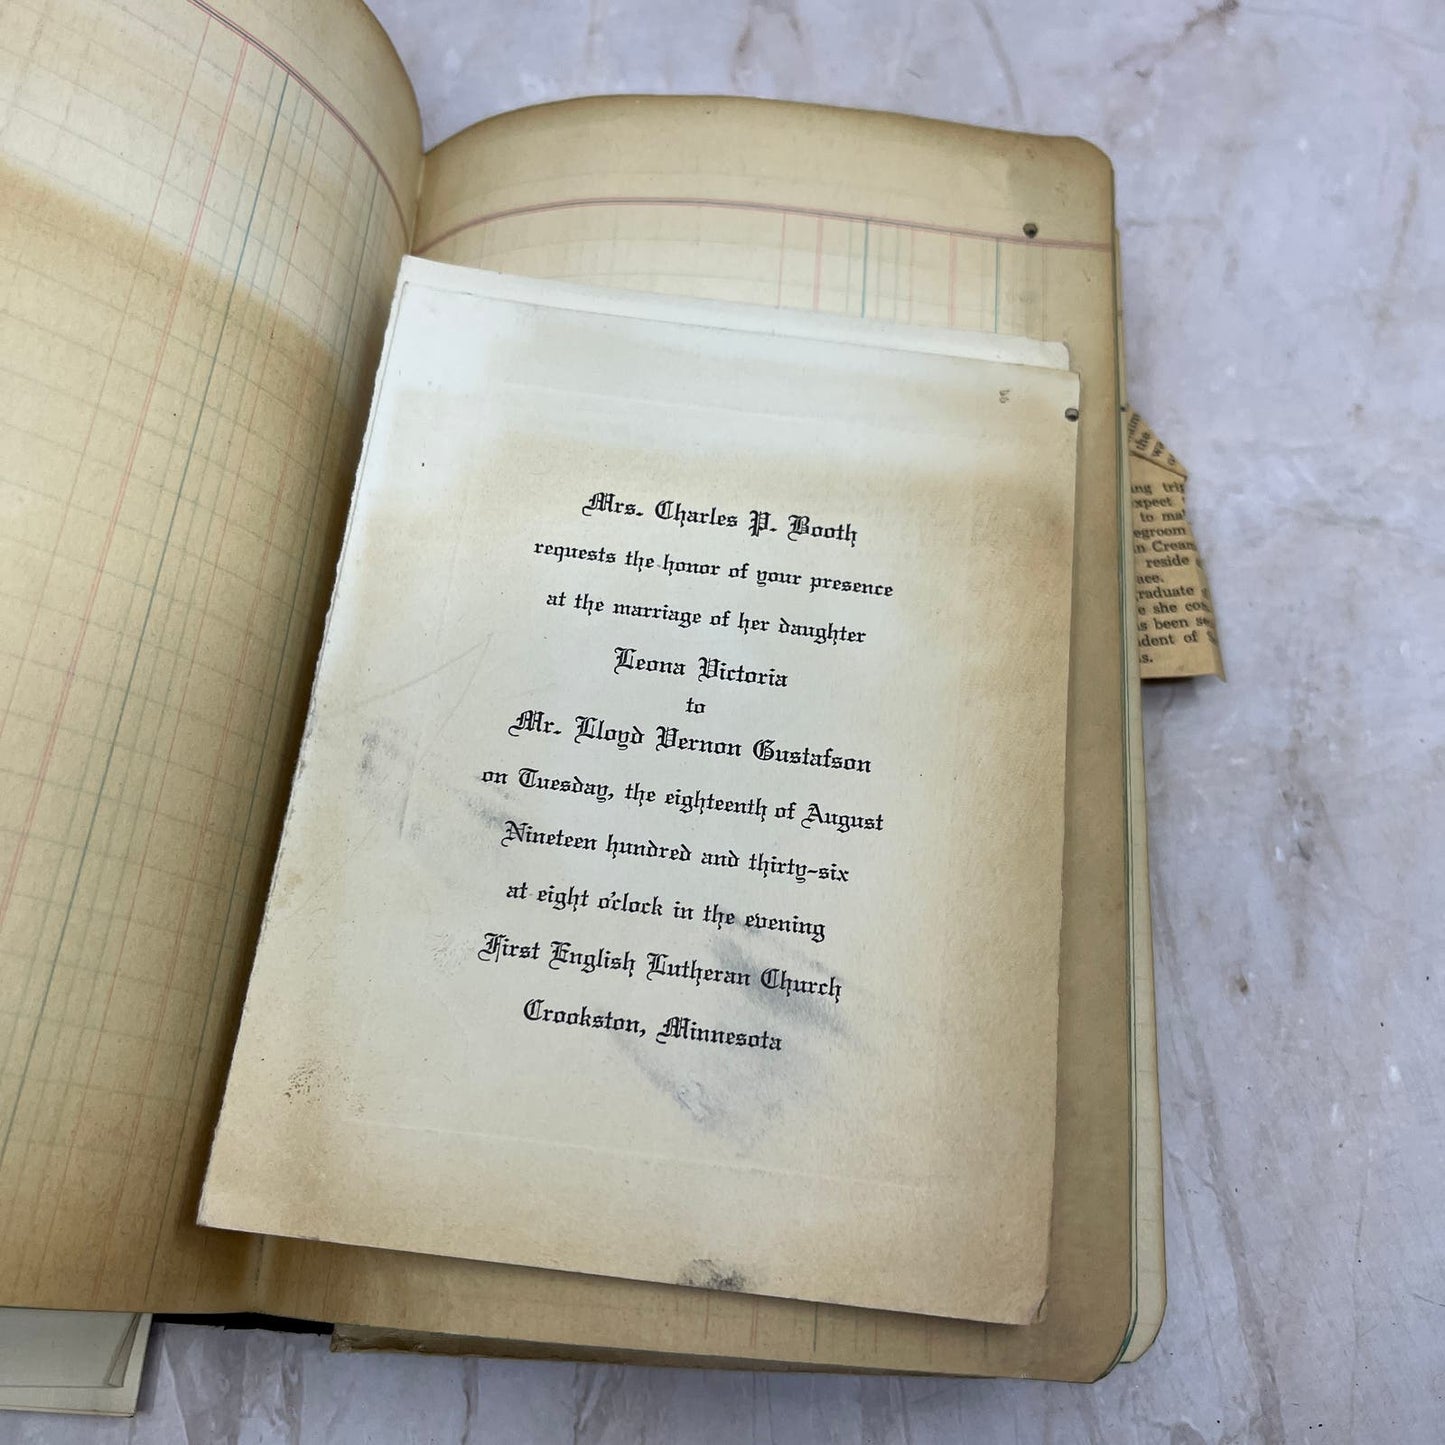 Mrs. Charles P. Booth
requests the honor of your presence
at the marriage of her daughter
Leona Victoria
to
Mr. Lloyd Vernon Gustafson
on Tuesday, the eighteenth of August
Nineteen hundred and thirty-six
at eight o'clock in the evening
First English Lutheran Church
Crookston, Minnesota
the
ng tri
xpect
to ma
egroom
n Cream
reside
ace.
raduate
e she cos
s been se
ident of
s.